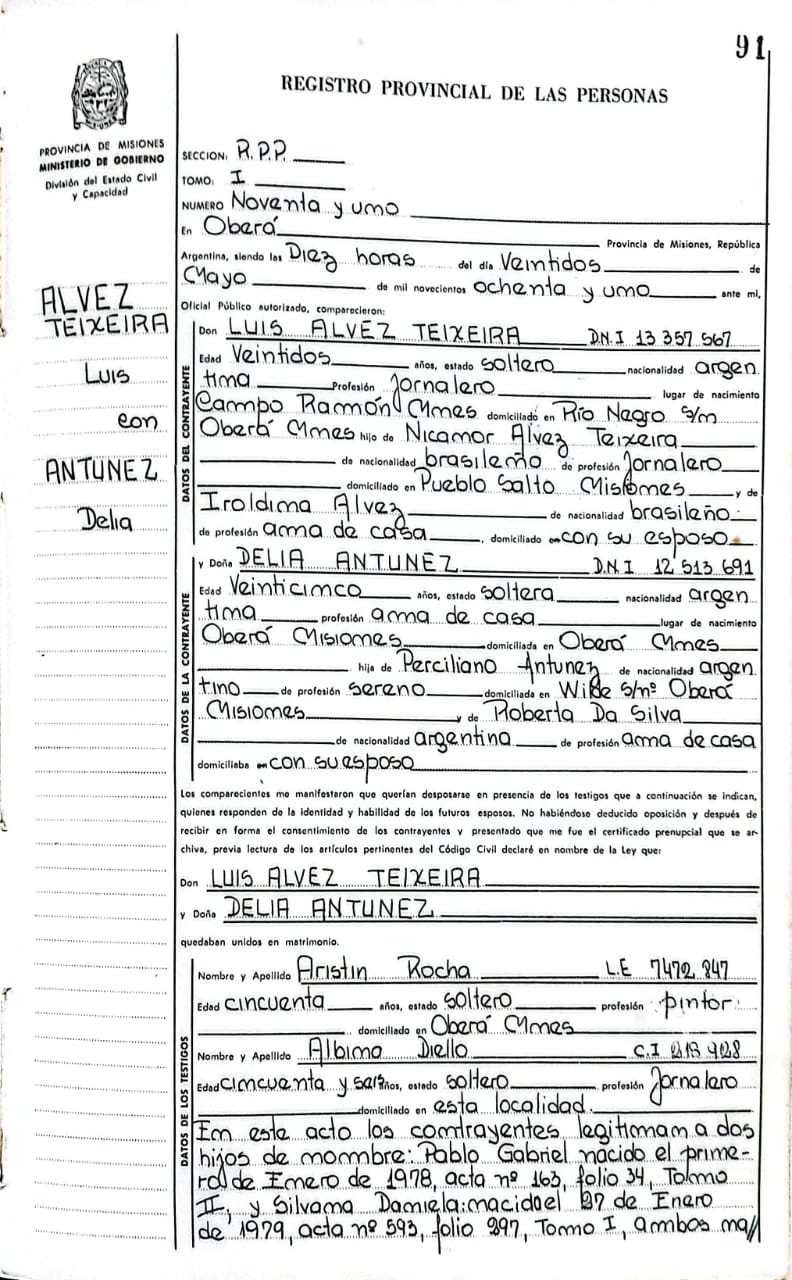 91
REGISTRO PROVINCIAL DE LAS PERSONAS
PROVINCIA DE MISIONES
MINISTERIO DE GOBIERNO
División del Estado Civil
y Capacidad
ALVEZ
TEIXEIRA
Luis
con
ANTUNEZ
Delia
SECCION: R.P.P.
TOMO: I
NUMERO Noventa y uno
En Oberá Provincia de Misiones, República
Argentina, siendo las Diez horas del día Veintidos de
Mayo de mil novecientos ochenta y uno ante mi,
Oficial Público autorizado, comparecieron:
DATOS DEL CONTRAYENTE
Don LUIS ALVEZ TEIXEIRA D.N.I 13 357 567
Edad Veintidos años, estado soltero nacionalidad argen
tina Profesión Jornalero lugar de nacimiento
Campo Ramón Mnes domiciliado en Río Negro s/n
Oberá Mnes hijo de Nicanor Alvez Teixeira
de nacionalidad brasileño de profesión Jornalero
domiciliado en Pueblo Salto Misiones y de
Iroldina Alvez de nacionalidad brasileño
de profesión ama de casa, domiciliado en con su esposo.
DATOS DE LA CONTRAYENTE
y Doña DELIA ANTUNEZ D.N.I 12 513 691
Edad Veinticinco años, estado soltera nacionalidad argen
tina profesión ama de casa lugar de nacimiento
Oberá Misiones domiciliada en Oberá Mnes
hija de Perciliano Antunez de nacionalidad argen
tino de profesión sereno domiciliada en Wilde s/nº Oberá
Misiones y de Roberta Da Silva
de nacionalidad argentina de profesión ama de casa
domiciliaba en con su esposo
Los comparecientes me manifestaron que querían desposarse en presencia de los testigos que a continuación se indican,
quienes responden de la identidad y habilidad de los futuros esposos. No habiéndose deducido oposición y después de
recibir en forma el consentimiento de los contrayentes y presentado que me fue el certificado prenupcial que se ar-
chiva, previa lectura de los artículos pertinentes del Código Civil declaré en nombre de la Ley que:
Don LUIS ALVEZ TEIXEIRA
y Doña DELIA ANTUNEZ
quedaban unidos en matrimonio.
DATOS DE LOS TESTIGOS
Nombre y Apellido Aristin Rocha L.E 7472 847
Edad cincuenta años, estado soltero profesión pintor
domiciliado en Oberá Mnes
Nombre y Apellido Albino Diello C.I
Edad cincuenta y seis años, estado soltero profesión Jornalero
domiciliado en esta localidad.
En este acto los contrayentes legitiman a dos
hijos de nombre: Pablo Gabriel nacido el prime-
ro de Enero de 1978, acta nº 163, folio 34, Tomo
II, y Silvana Daniela: nacida el 27 de Enero
de 1979, acta nº 593, folio 297, Tomo I, ambos na//